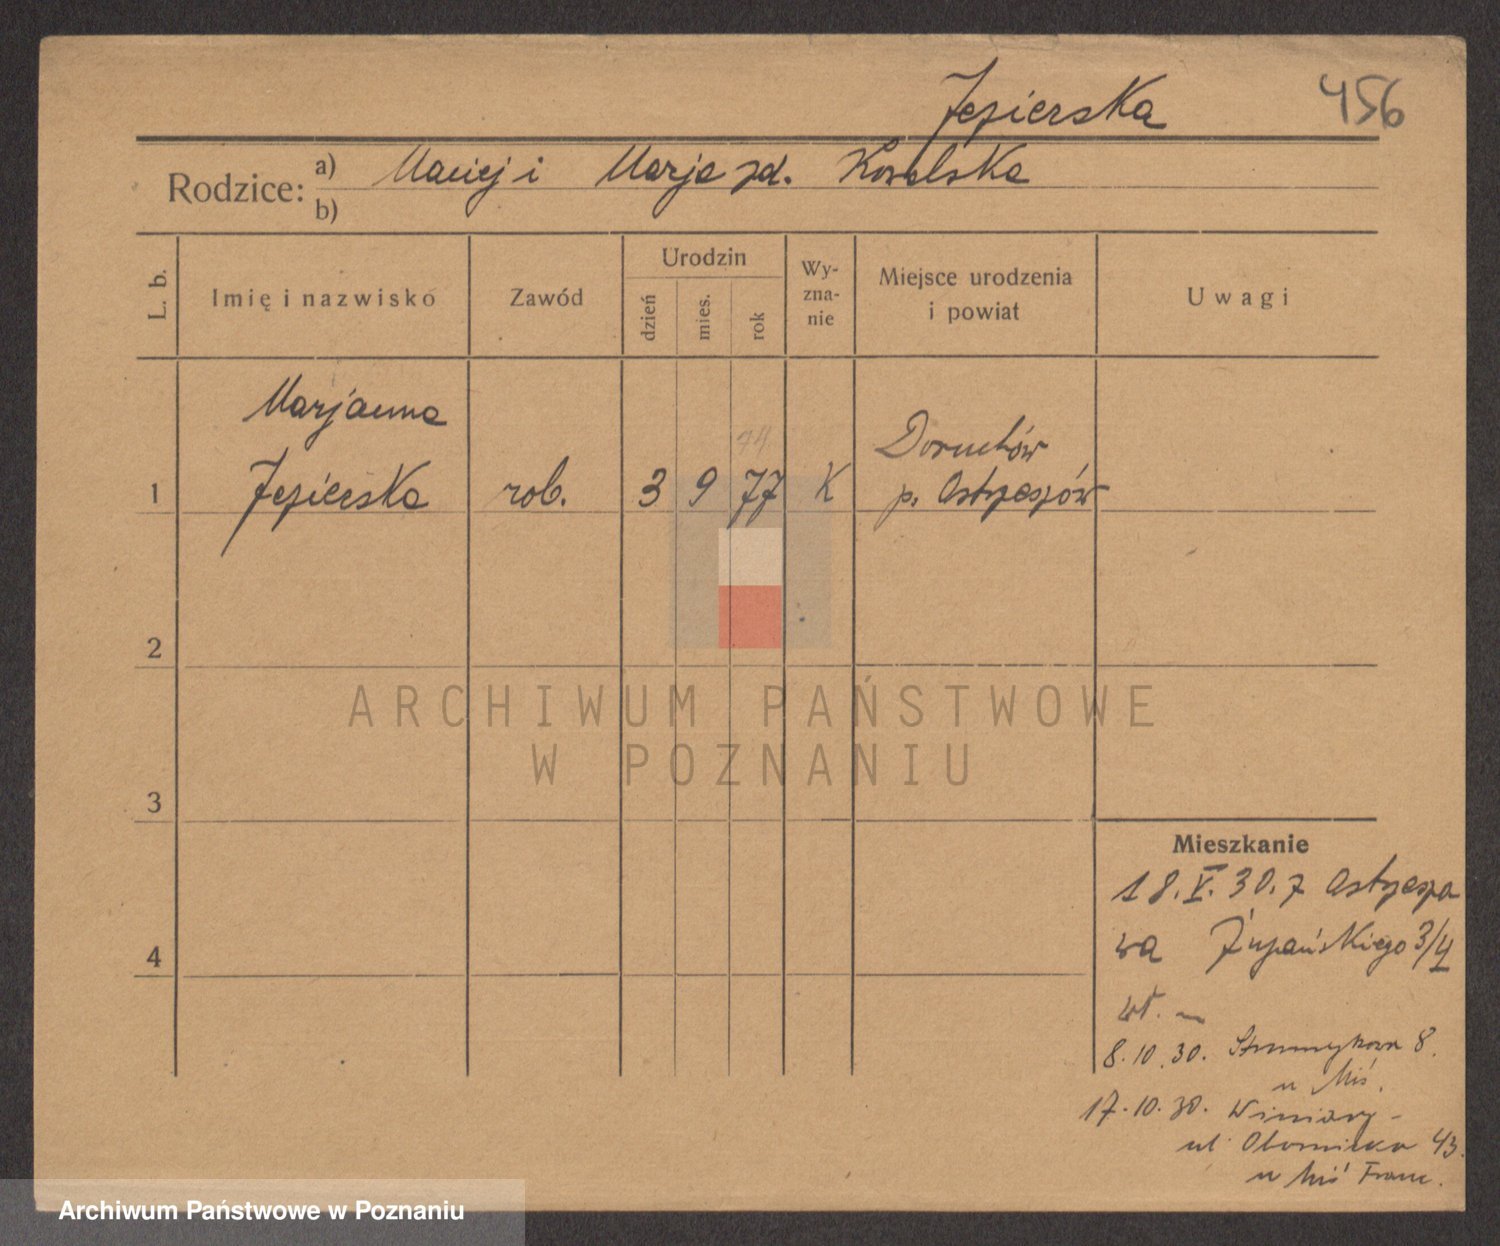 Jezierska
456
Rodzice: a) Maciej i Marja zd. Kowalska
b)
L. b.
Imię i nazwisko
Zawód
Urodzin
dzień
mies.
rok
Wy-
zna-
nie
Miejsce urodzenia
i powiat
Uwagi
Marjanna
74
Doruchów
1 Jezierska rob. 3 9 77 K p. Ostrzeszów
2
ARCHIWUM PAŃSTWOWE
W POZNANIU
3
Mieszkanie
18.V.30. z Ostrzeszo
wa Żupańskiego 3/4
4
wł. —
8.10.30. Strumykowa 8.
u Miś.
17.10.30. Winiary -
ul. Obornicka 43.
u Miś Franc.
Archiwum Państwowe w Poznaniu